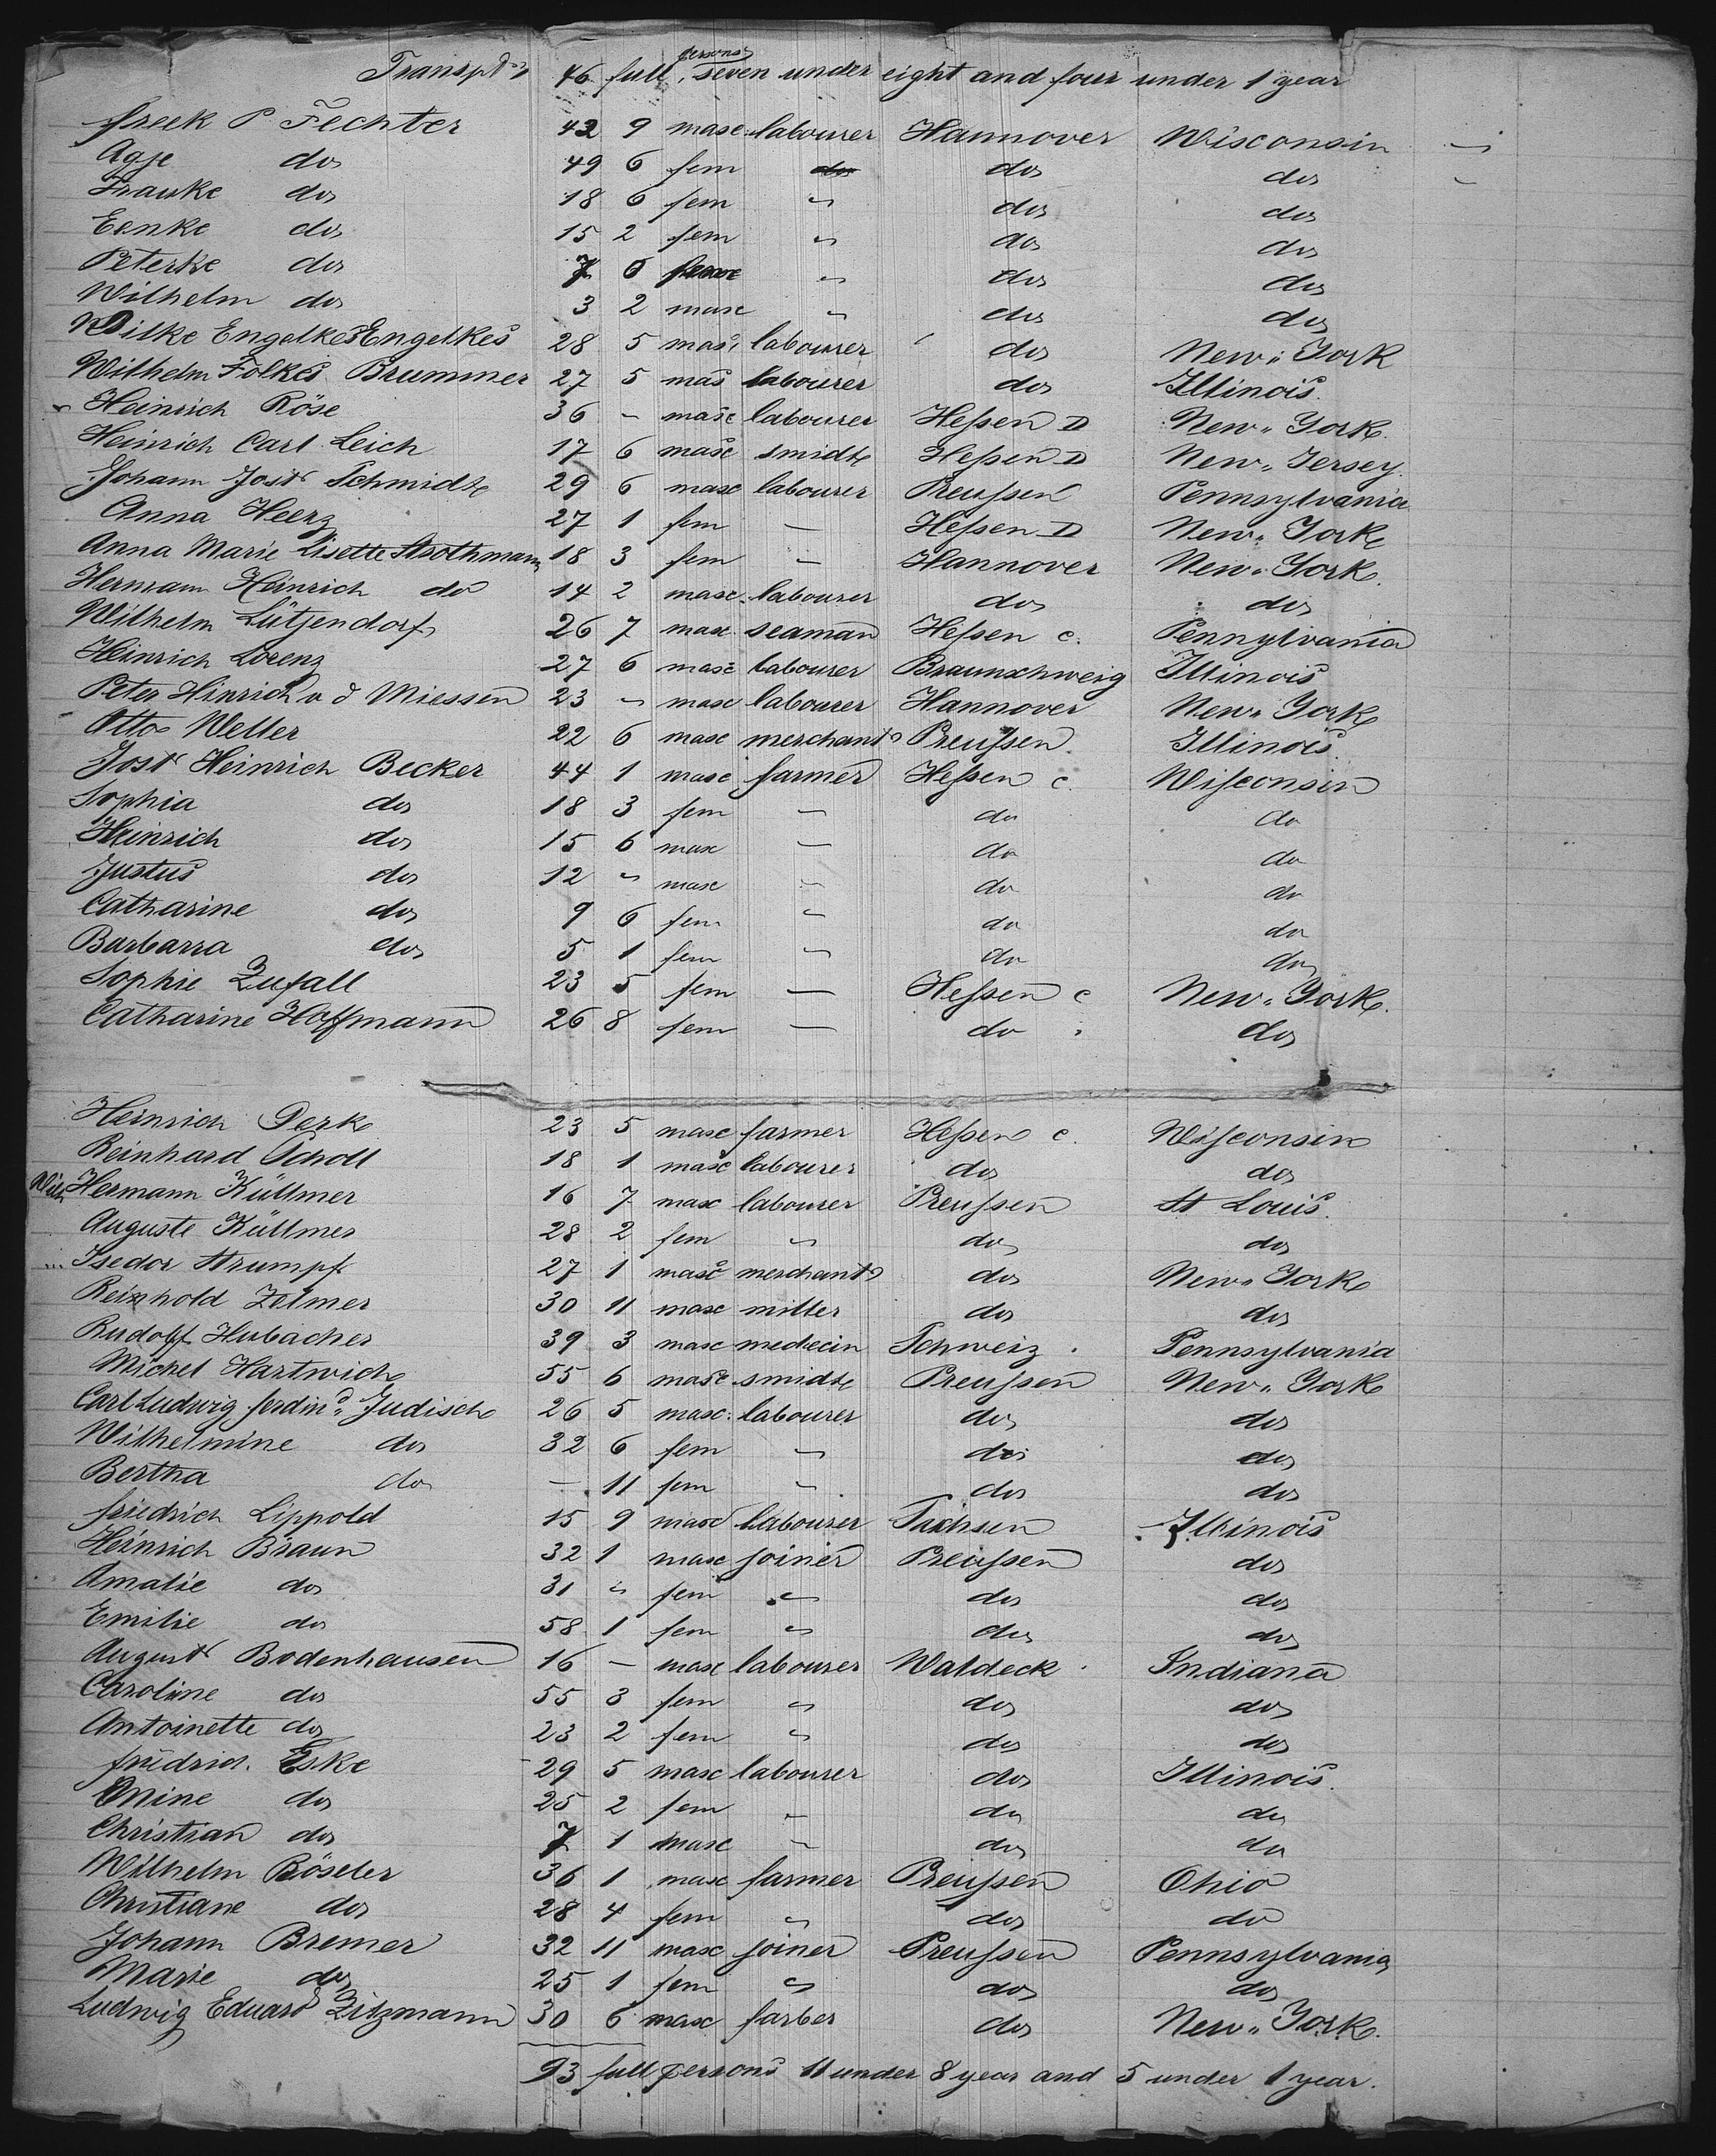 Transpt 46 full persons, seven under eight and four under 1 year
freek P Fechter 42 9 masc. labourer Hannover Wisconsin
Agje do 49 6 fem do do
Frauke do 18 6 fem " do do
Eenke do 15 2 fem " do do
Peterke do 7 6 " do do
Wilhelm do 3 2 masc " do do
Wilke Engelkes Engelkes 28 5 masc labourer do New-York
Wilhelm Folkes Brummer 27 5 mas labourer do Illinois.
Heinrich Röse 36 - masc labourer Heſsen D New-York.
Heinrich Carl Leich 17 6 masc smidt Heſsen D New-Jersey
Johann Jost Schmidt 29 6 masc labourer Preuſsen Pennsylvania
Anna Heerz 27 1 fem - Heſsen D New-York
Anna Marie Lisette Strothmann 18 3 fem - Hannover New-York.
Hermann Heinrich do 14 2 masc. labourer do do
Wilhelm Lützendorf 26 7 masc. seaman Heſsen c. Pennylvania
Heinrich Lorenz 27 6 masc labourer Braunschweig Illinois
Peter Hinrich v d Miessen 23 " masc labourer Hannover New-York
Otto Weller 22 6 masc merchant Preuſsen. Illinois.
Jost Heinrich Becker 44 1 masc farmer Heſsen c. Wiſconsin
Sophia do 18 3 fem - do do
Heinrich do 15 6 masc - do do
Justus do 12 " masc - do do
Catharine do 9 6 fem " do do
Barbarra do 5 1 fem " do do
Sophie Zufall 23 5 fem - Heſsen c New-York.
Catharine Hoffmann 26 8 fem - do do
Heinrich Derk 23 5 masc farmer Heſsen c. Wiſconsin
Reinhard Scholl 18 1 masc labourer do do
Hermann Küllmer 16 7 masc labourer Preuſsen St Louis.
Auguste Küllmer 28 2 fem " do do
Isedor Strumpf 27 1 masc merchant do New-York
Reinhold Zelmer 30 11 masc miller do do
Rudolf Hubacher 39 3 masc medecin Schweiz. Pennsylvania
Michel Hartwich 55 6 masc smidt Preuſsen New-York
Carl Ludwig ferdind. Judisch 26 5 masc. labourer do do
Wilhelmine do 32 6 fem " do do
Bertha do - 11 fem " do do
friedrich Lippold 15 9 masc labourer Sachsen Illinois
Heinrich Braun 32 1 masc joiner Preuſsen do
Amalie do 31 " fem " do do
Emilie do 58 1 fem " do do
August Bodenhausen 16 - masc labourer Waldeck Indiana
Caroline do 55 3 fem " do do
Antoinette do 23 2 fem " do do
friedrich. Eske 29 5 masc labourer do Illinois.
Mine do 25 2 fem " do do
Christian do 7 1 masc " do do
Wilhelm Böseler 36 1 masc farmer Preuſsen Ohio
Christiane do 28 4 fem " do do
Johann Bremer 32 11 masc joiner Preuſsen Pennsylvania
Marie do 25 1 fem " do do
Ludwig Eduard Zitzmann 30 6 masc farber do New-York.
93 full persons 11 under 8 year and 5 under 1 year.